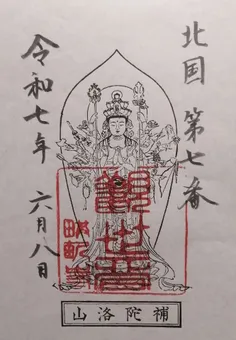 北国 第七番
令和七年 六月八日
補陀洛山